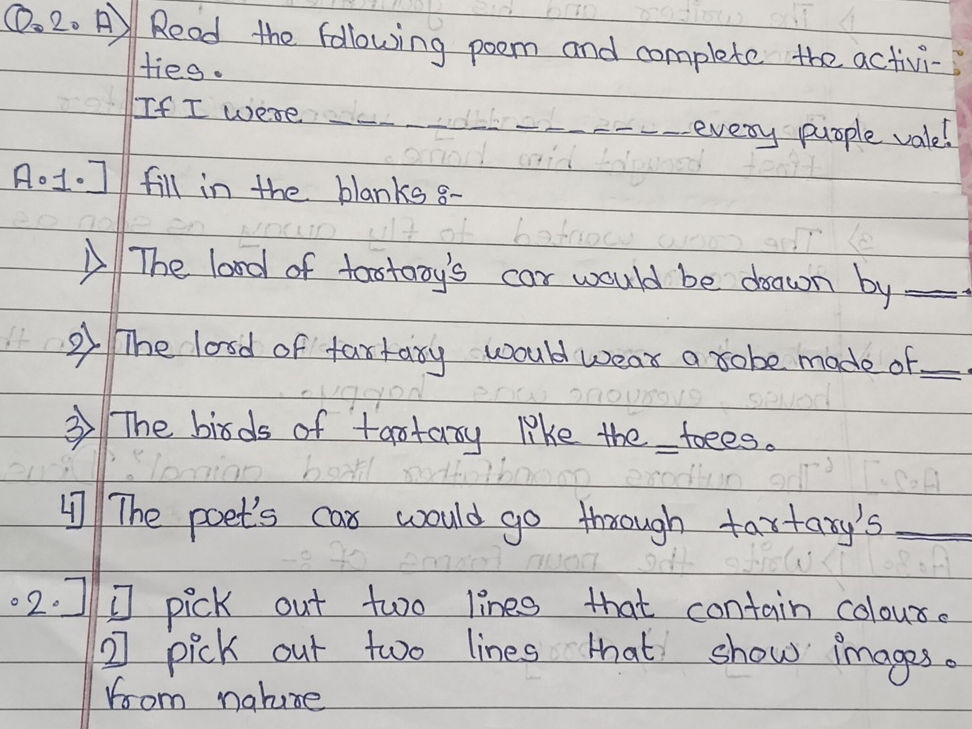 Q.2. A) Read the following poem and complete the activi-
ties.
If I were ____ ____ ____ ____ every purple vale!
A.1.] fill in the blanks :-
1) The lord of tartary's car would be drawn by ___.
2) The lord of tartary would wear a robe made of __.
3) The birds of tartary like the _ trees.
4] The poet's car would go through tartary's ____
.2.] 1] pick out two lines that contain colour.
2] pick out two lines that show images.
from nature